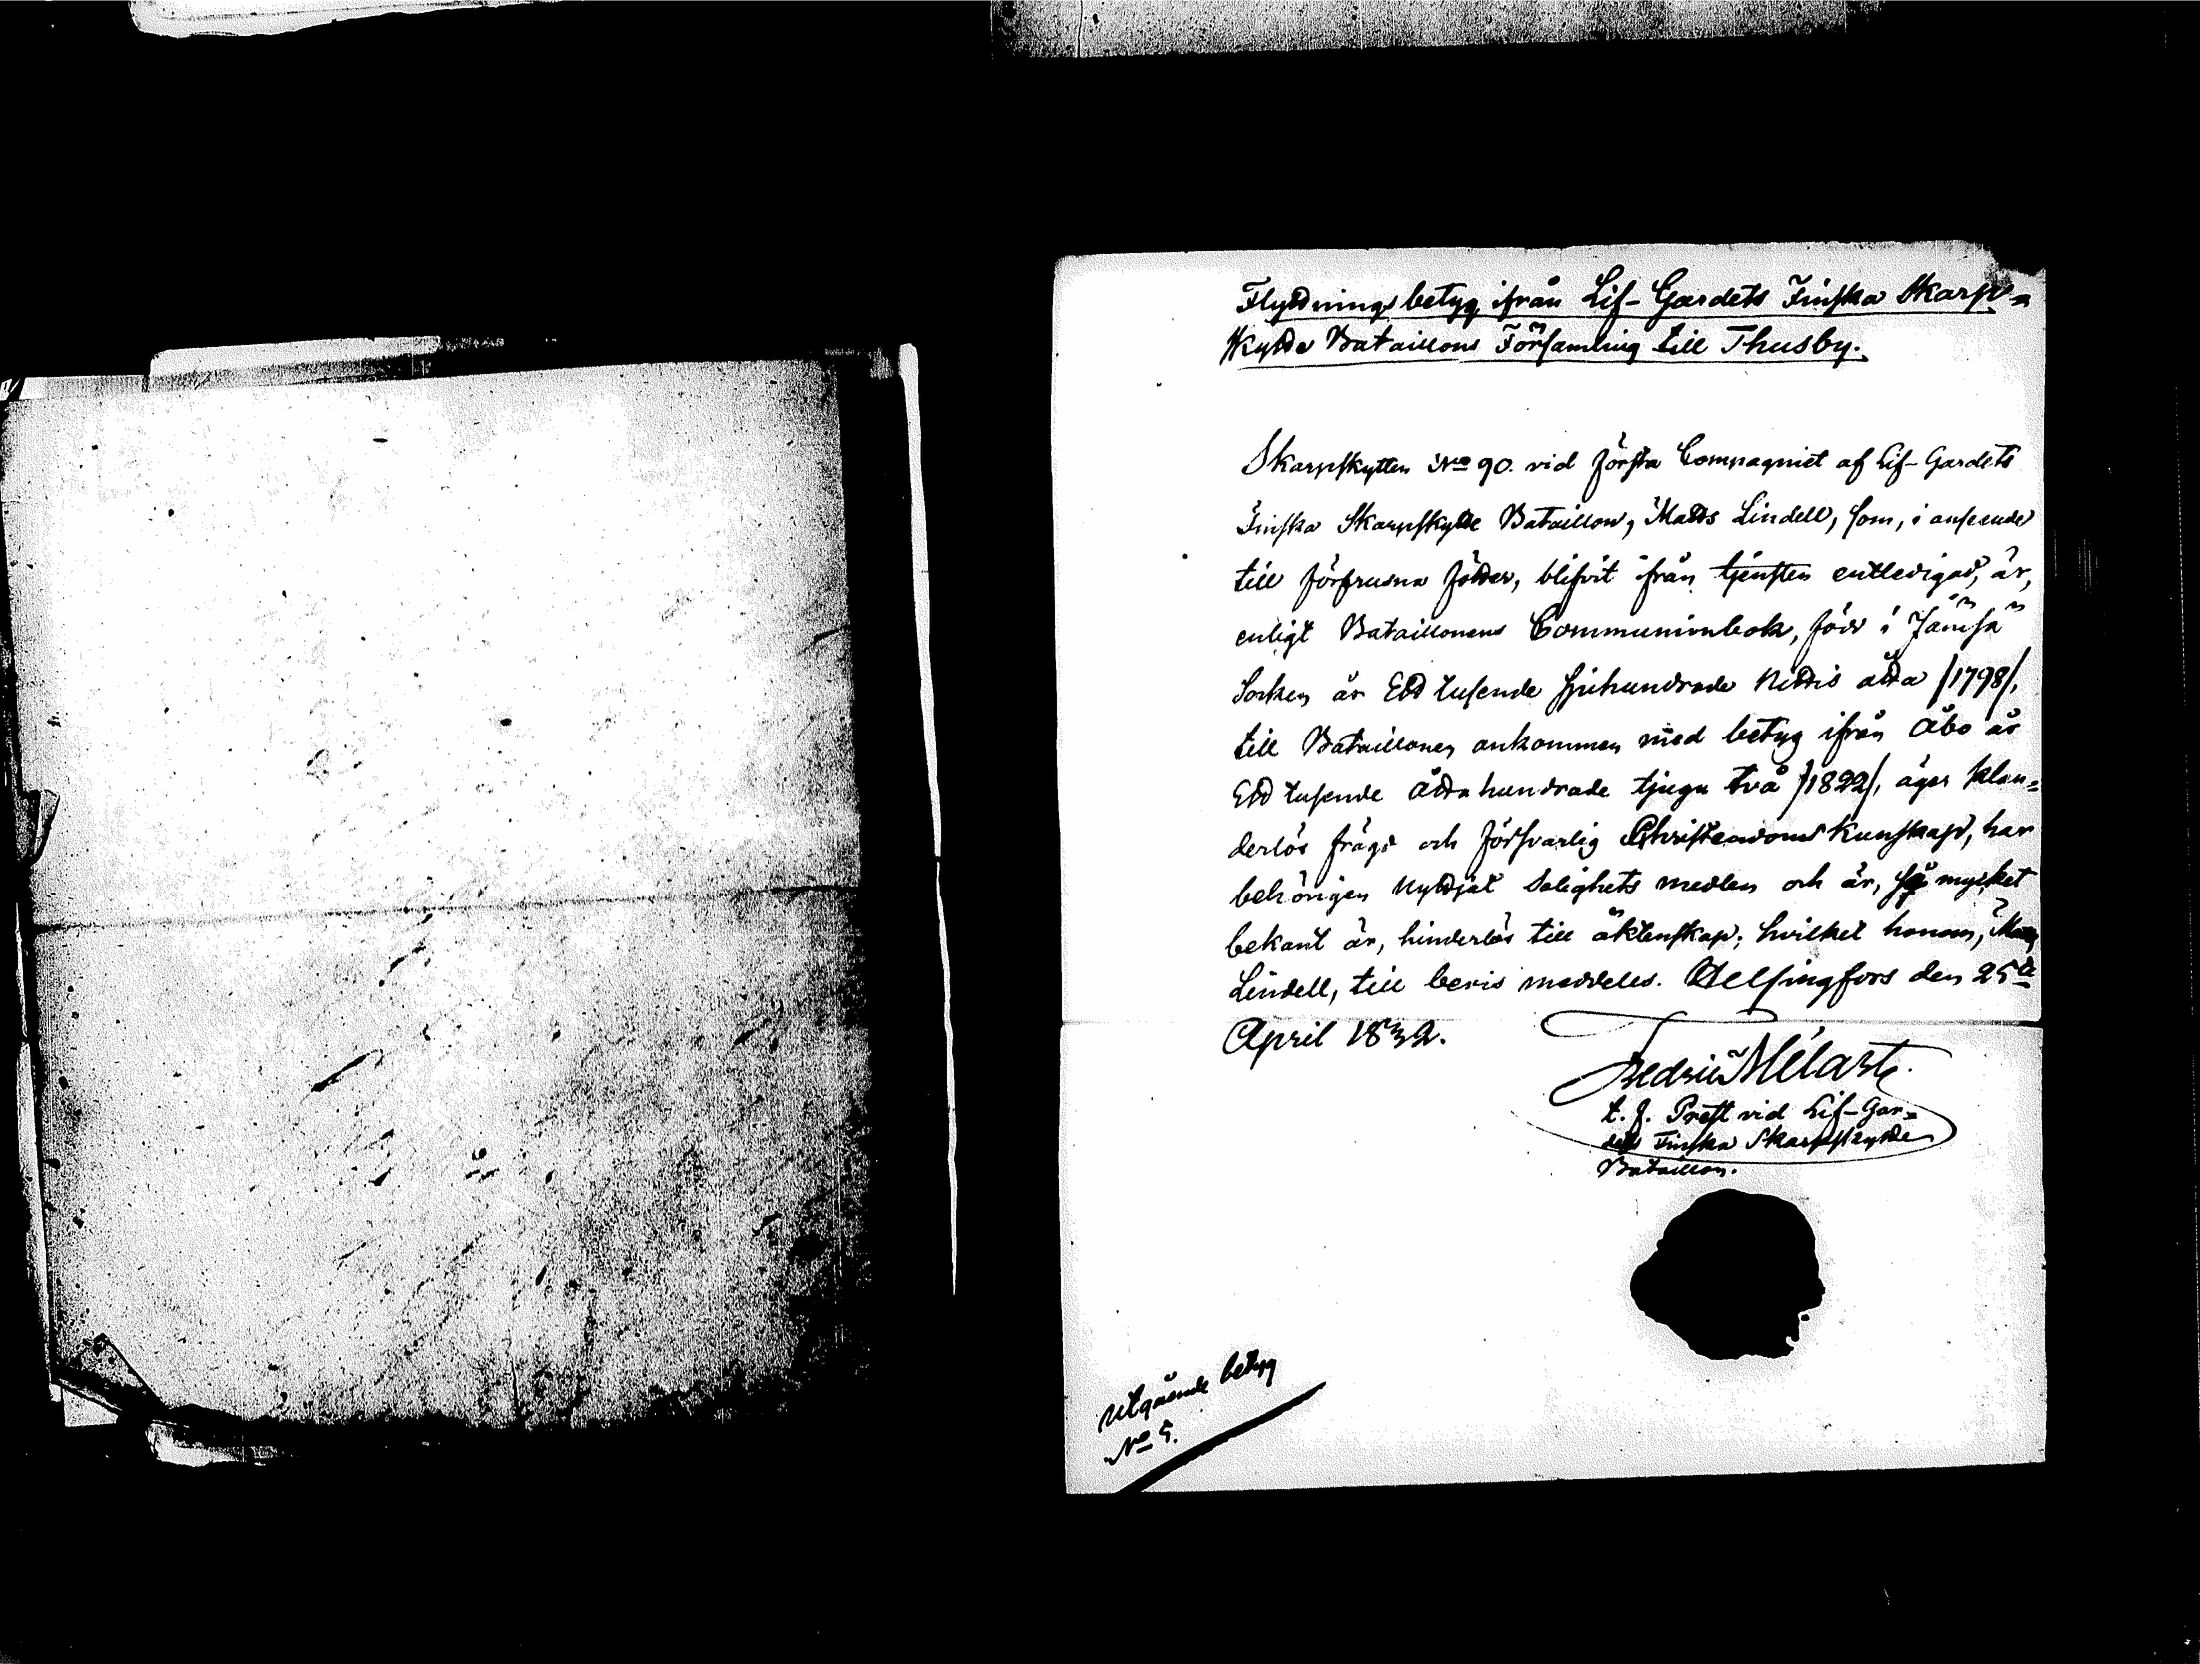 Flyttnings betyg ifrån Lif-Gardets Finska Skarp=
skytte Bataillons Församling till Thusby.
Skarpskytten No 90. vid första Compagniet af Lif-Gardets
Finska Skarpskytte Bataillon, Matts Lindell, som, i anseende
till förfrusna fötter, blifvit ifrån tjensten entledigad, är,
enligt Bataillonens Communionbok, född i Jämsä
Socken år Ett tusende Sjuhundrade Nittio åtta /1798/,
till Bataillonen ankommen med betyg ifrån Åbo år
Ett tusende Åttahundrade tjugu två /1822/, äger klan=
derlös frägd och försvarlig Christendoms kunskap, har
behörigen nyttjat Salighets medlen och är, så mycket
bekant är, hinderlös till äktenskap; hvilket honom,
Lindell, till bevis meddeles. Helsingfors den 25te
April 1832.
Fredric Mélart.
t. f. Prest vid Lif-Gar=
dets Finska Skarpskytte
Bataillon.
Utgående betyg
No 5.